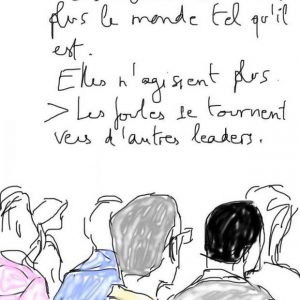 plus le monde tel qu'il
est.
Elles n'agissent plus.
> Les foules se tournent
vers d'autres leaders.